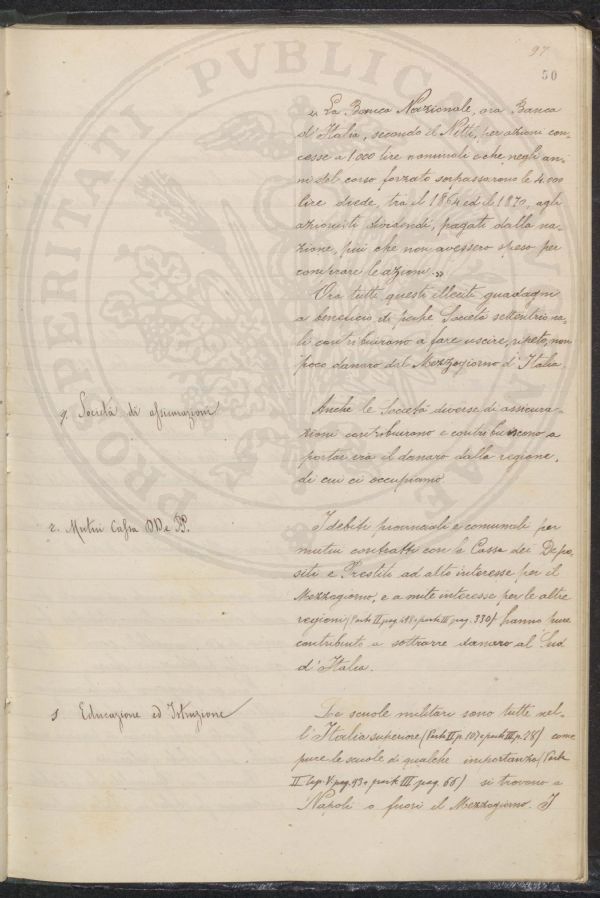 97
50
PROSPERITATI PUBLICAE
« La Banca Nazionale, ora Banca
d'Italia, secondo il Nitti, per azioni con-
cesse a 1000 lire nominali e che negli an-
ni del corso forzato sorpassarono le 4.000
lire diede, tra il 1864 ed il 1870, agli
azionisti dividendi, pagati dalla na-
zione, più che non avessero speso per
comprare le azioni. »
Ora tutti questi illeciti guadagni
a beneficio di poche Società settentriona-
li contribuirono a fare uscire, ripeto, non
poco danaro dal Mezzogiorno d'Italia
q. Società di assicurazioni
Anche le Società diverse di assicura-
zioni contribuirono e contribuiscono a
portar via il danaro dalla regione,
di cui ci occupiamo.
r. Mutui Cassa DD. e PP.
I debiti provinciali e comunali per
mutui contratti con la Cassa dei Depo-
siti e Prestiti ad alto interesse per il
Mezzogiorno, e a mite interesse per le altre
regioni (Parte II pag. e parte III pag. 330) hanno pure
contributo a sottrarre danaro al Sud
d'Italia.
s Educazione ed Istruzione
Le scuole militari sono tutte nel-
l'Italia superiore (Parte II p. 107 e parte III p. 28) come
pure le scuole di qualche importanza (Parte
II Cap. V. pag. 93 e parte III pag. 66) si trovano a
Napoli o fuori il Mezzogiorno. I